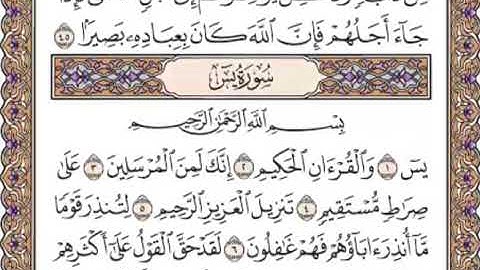 جَآءَ أَجَلُهُمْ فَإِنَّ ٱللَّهَ كَانَ بِعِبَادِهِۦ بَصِيرًۢا ٤٥
سُورَةُ يسٓ
بِسْمِ ٱللَّهِ ٱلرَّحْمَٰنِ ٱلرَّحِيمِ
يسٓ ١ وَٱلْقُرْءَانِ ٱلْحَكِيمِ ٢ إِنَّكَ لَمِنَ ٱلْمُرْسَلِينَ ٣ عَلَىٰ
صِرَٰطٍ مُّسْتَقِيمٍ ٤ تَنزِيلَ ٱلْعَزِيزِ ٱلرَّحِيمِ ٥ لِتُنذِرَ قَوْمًا
مَّآ أُنذِرَ ءَابَآؤُهُمْ فَهُمْ غَٰفِلُونَ ٦ لَقَدْ حَقَّ ٱلْقَوْلُ عَلَىٰٓ أَكْثَرِهِمْ